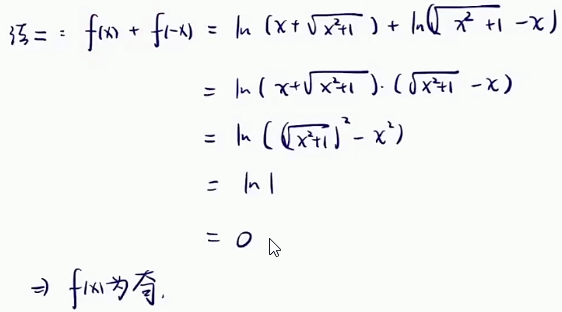 法二: f(x) + f(-x) = ln (x+√(x²+1)) + ln(√(x²+1) -x)
= ln (x+√(x²+1))·(√(x²+1) -x)
= ln ((√(x²+1))² - x²)
= ln 1
= 0
⇒ f(x)为奇.